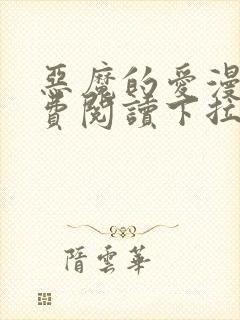 惡魔的愛漫
費閱讀下拉
隋雲華